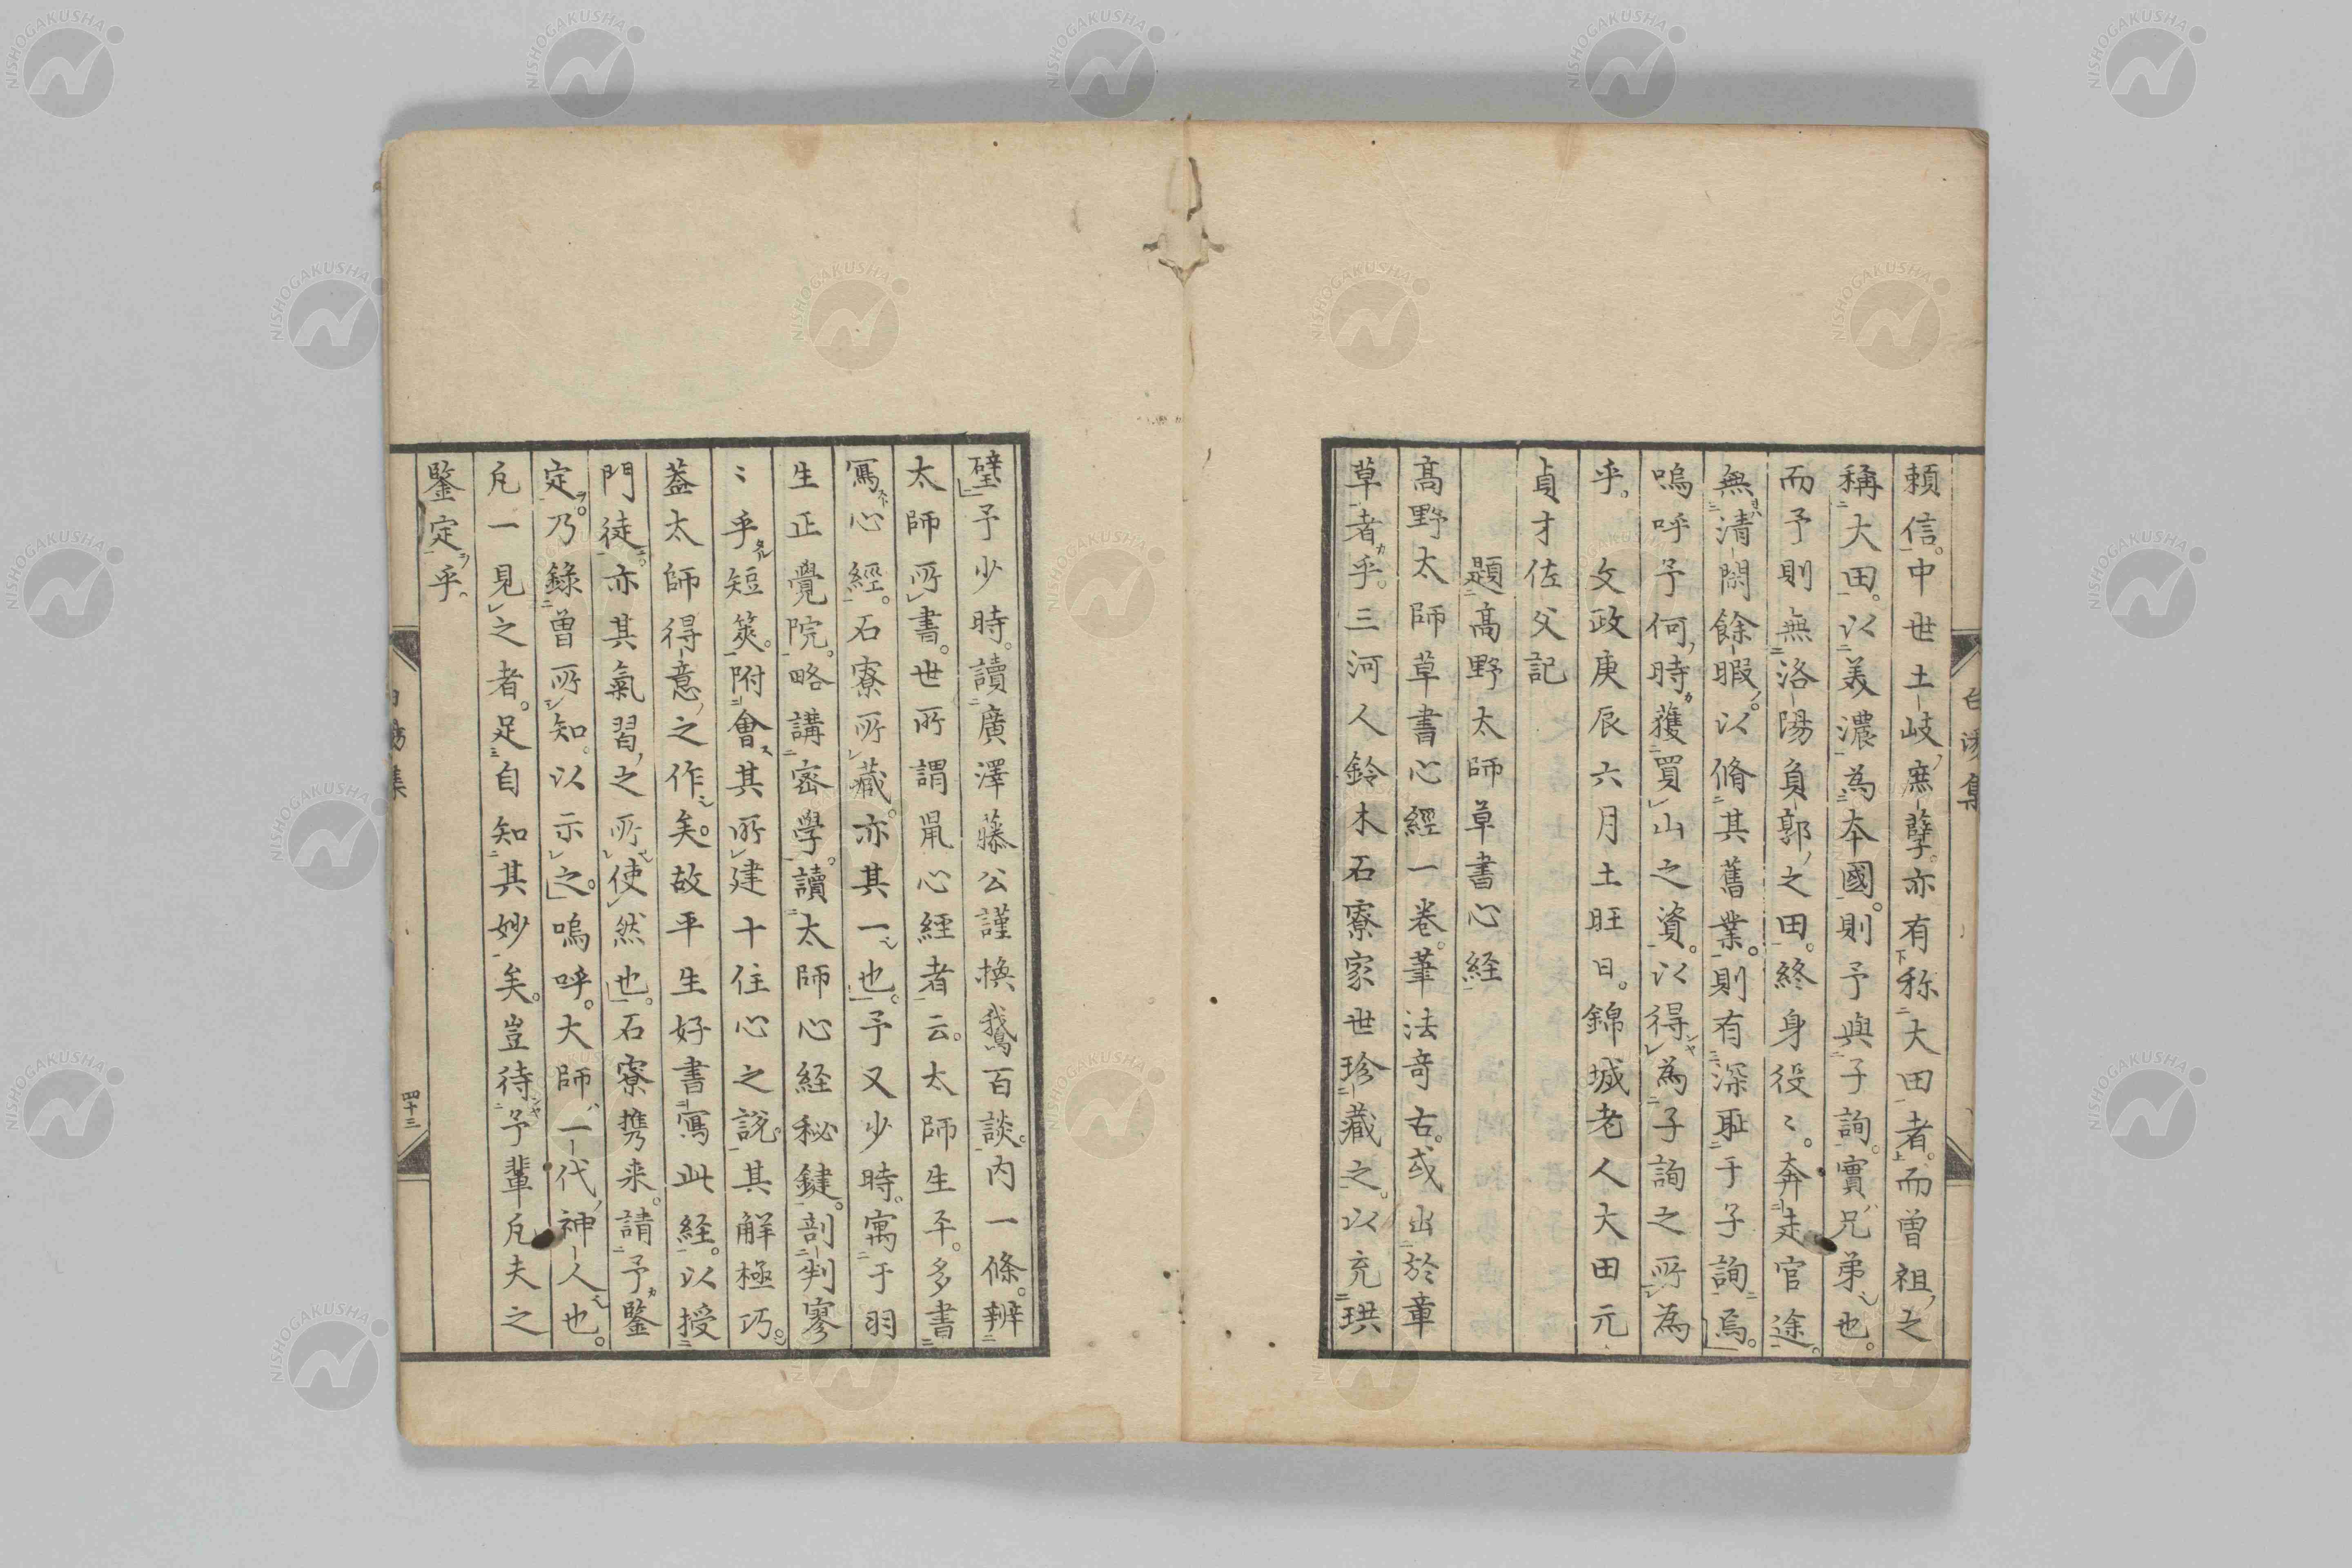 頼信。中世土岐庶孽。亦有称大田者。而曽祖之
稱大田。以美濃為本國。則予與子詢。實兄弟也。
而予則無洛陽負郭之田。終身役〻。奔走官途。
無清閑餘暇。以脩其舊業。則有深耻于子詢焉。
嗚呼予何時獲買山之資。以得為子詢之所為
乎。 文政庚辰六月土旺日。錦城老人大田元
貞才佐父記
題髙野太師草書心経
髙野太師草書心經一巻。筆法奇右。或出於章
草者乎。三河人鈴木石寮家世珍藏之。以充珙
璧予少時。讀廣澤藤公謹換鵞百談。内一條。辨
太師所書。世所謂鼠心経者云。太師生平。多書
寫心經。石寮所藏。亦其一也。予又少時。寓于羽
生正覺院。略講密學。讀太師心経秘鍵。剖判寥
〻乎短䇲。附會其所建十住心之説。其解極巧。
葢太師得意之作矣。故平生好書寫此経。以授
門徒。亦其氣習之所使然也。石寮携来。請予鑒
定。乃錄曽所知。以示之。嗚呼。大師一代神人也。
凢一見之者。足自知其妙矣。豈待予輩凢夫之
鑒定乎。
四十三